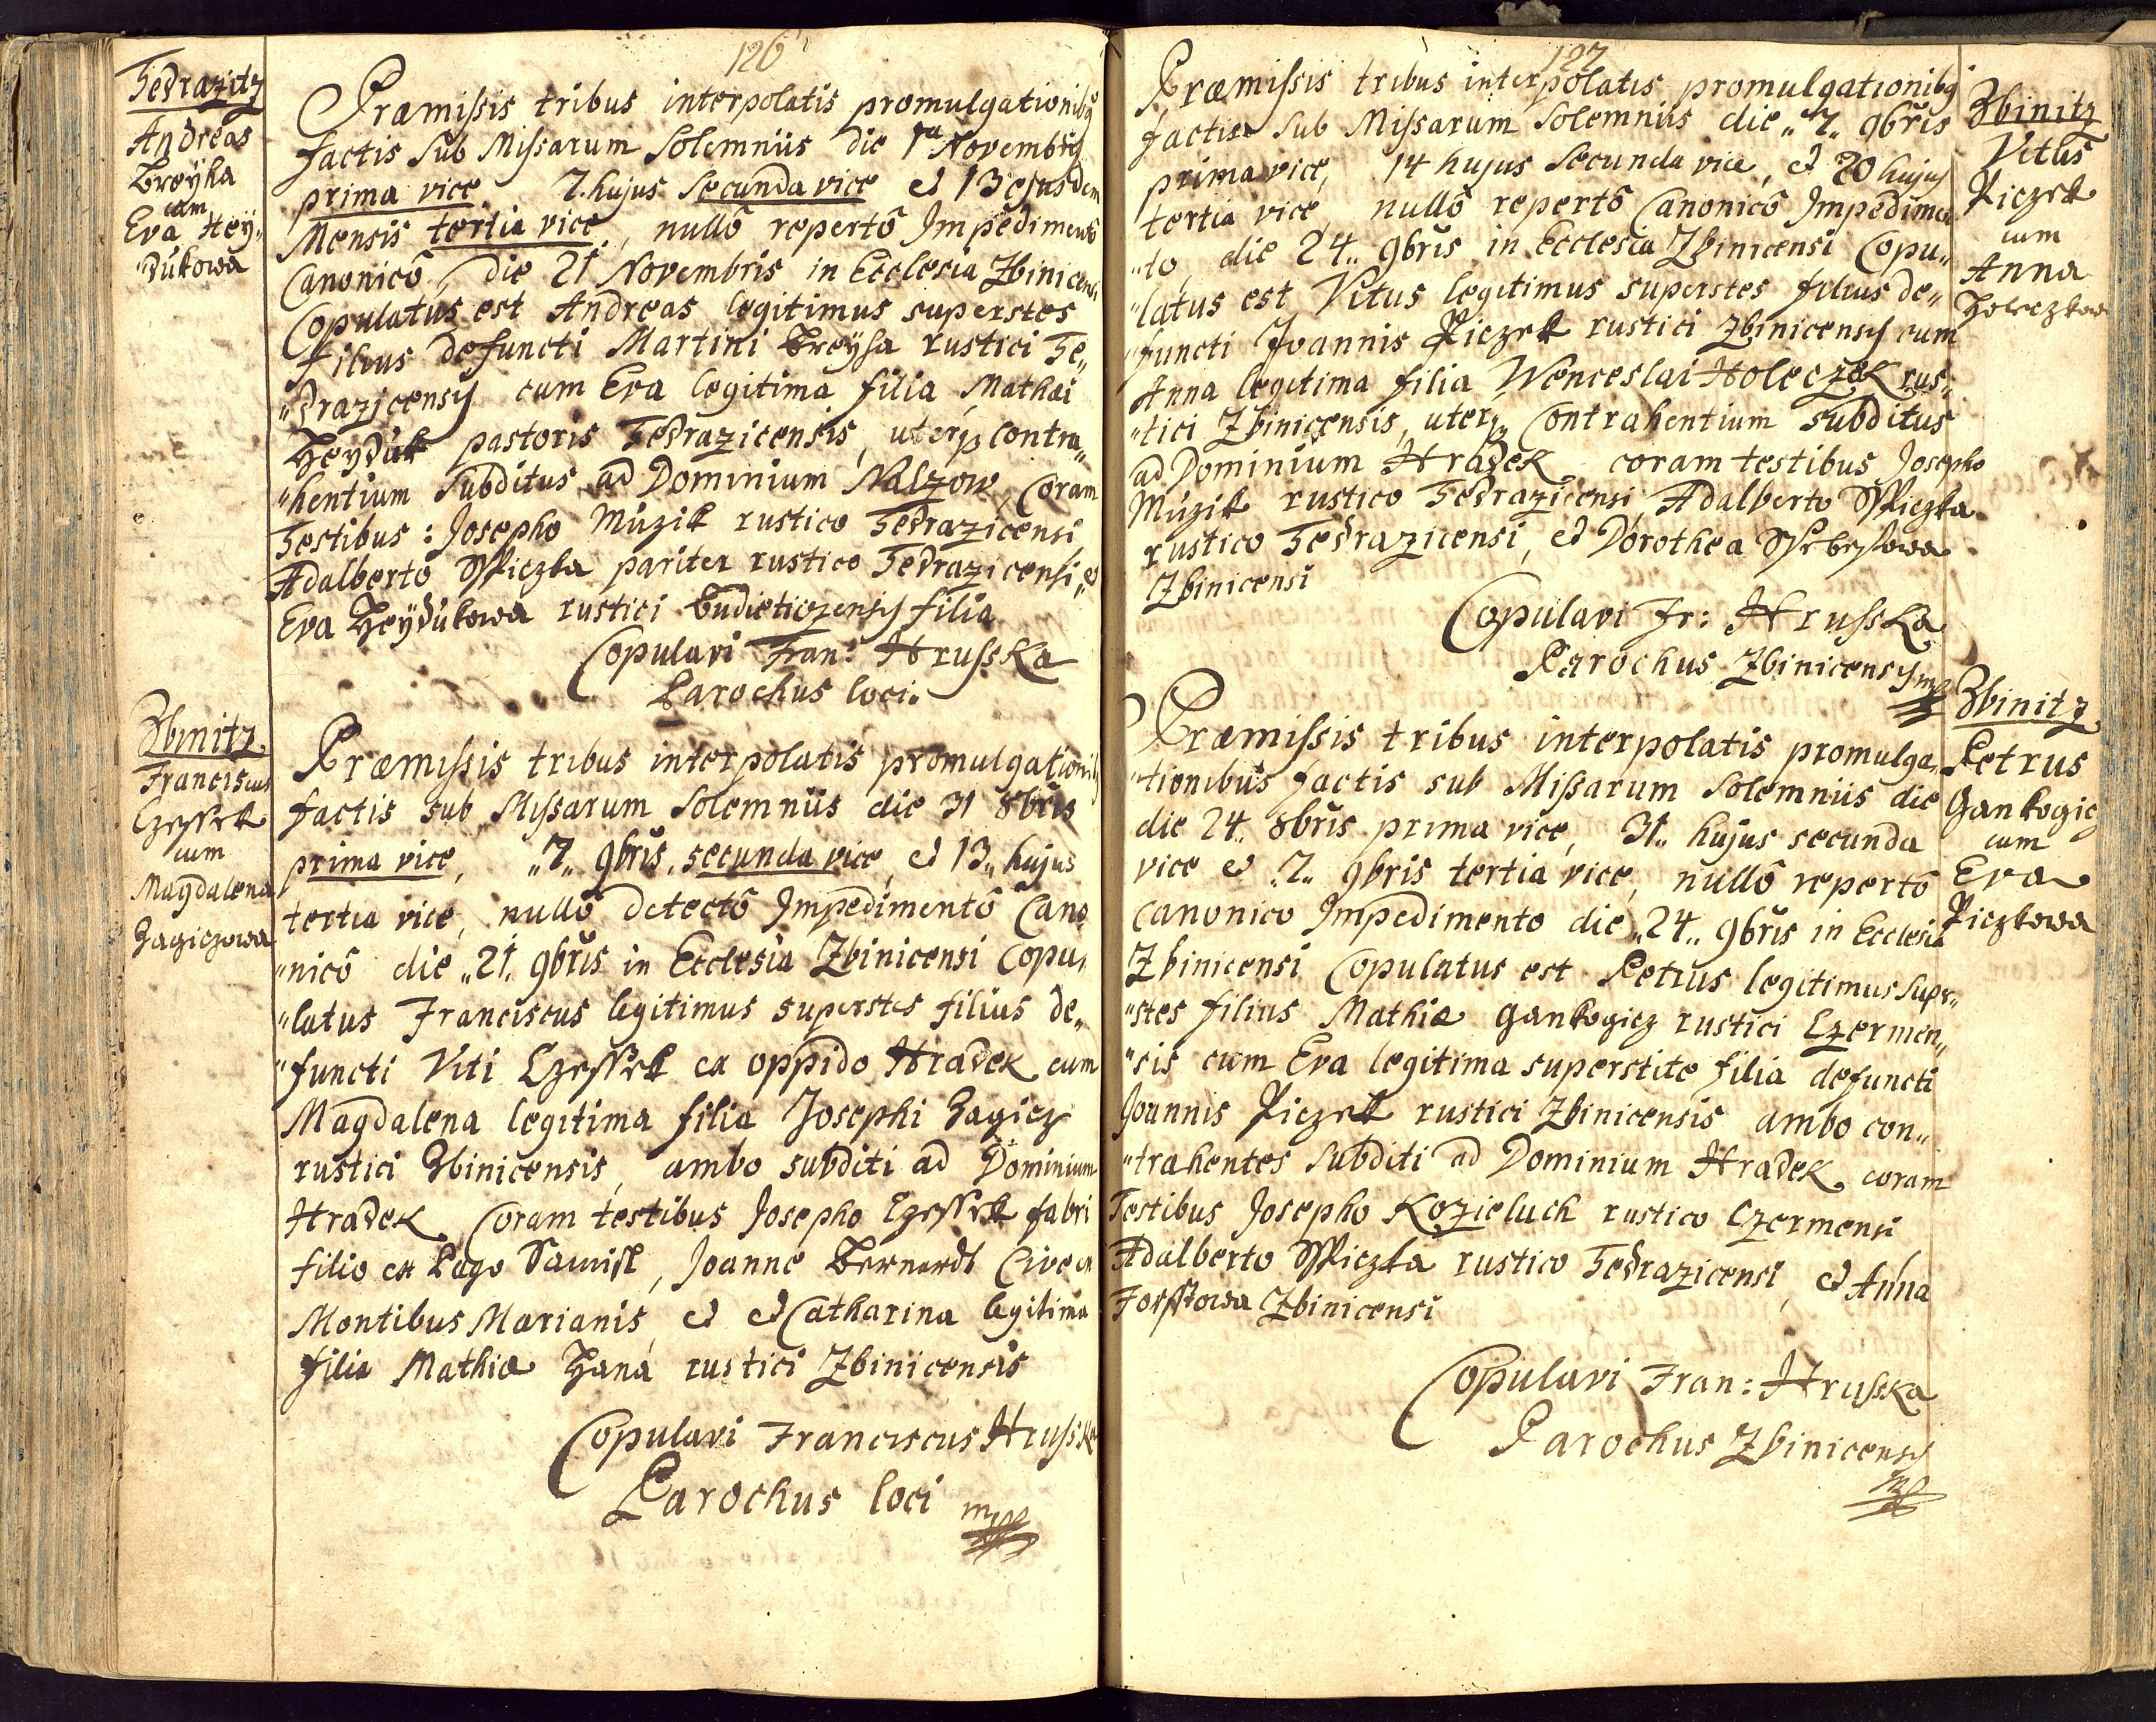 126
Tedrazitz
Andreas
Breyha
cum
Eva Hey„
„dukowa
Præmissis tribus interpolatis promulgationibꝰ
factis sub Missarum Solemniis die 1ma Novembris
prima vice 7. hujus secunda vice et 13 ejusdem
Mensis tertia vice, nullô repertô Impedimentô
Canonicô, die 21 Novembris in Ecclesia Zbinicensi
Copulatus est Andreas legitimus superstes
filius defuncti Martini Breyha rustici Te„
„drazicensis cum Eva legitima filia Mathæi
Heyduk pastoris Tedrazicensis, uterq; contra„
„hentium subditus ad Dominium Nalzow, Coram
Testibus: Josepho Muzik rustico Tedrazicensi
Adalberto Spiczka pariter rustico Tedrazicensi, et
Eva Heydukowa rustici Budieticzensis filia
Copulavi Fran: Hrusska
Parochus loci.
Zbinitz
Franciscus
Czessek
cum
Magdalena
Zagiczowa
Præmissis tribus interpolatis promulgationibꝰ
factis sub Missarum Solemniis die 31 8bris
prima vice, „7„ 9bris, secunda vice, et 13„ hujus
tertia vice, nullô detectô Impedimentô Cano
„nicô die „21„ 9bris in Ecclesia Zbinicensi Copu„
„latus Franciscus legitimus superstes filius de„
„functi Viti Czessek ex oppido Hradek cum
Magdalena legitima filia Josephi Zagicz
rustici Zbinicensis, ambo subditi ad Dominium
Hradek Coram testibus Josepho Czessek fabri
filio ex Pago, Joanne Bernardt Cive ex
Montibus Marianis, et et Catharina legitima
filia Mathiæ Hana rustici Zbinicensis
Copulavi Franciscus Hrusska
Parochus loci mpp
127
Præmissis tribus interpolatis promulgationibꝰ
factis sub Missarum Solemniis die „7„ 9bris
prima vice, 14 hujus secunda vice, et 20 hujus
tertia vice, nullô repertô Canonicô Impedimen
„to, die 24„ 9bris in Ecclesia Zbinicensi Copu„
„latus est Vitus legitimus superstes filius de„
„functi Joannis Piczek rustici Zbinicensis cum
Anna legitima filia Wenceslai Holeczek rus„
„tici Zbinicensis, uterq; Contrahentium subditus
ad Dominium Hradek coram testibus Josepho
Muzik rustico Tedrazicensi, Adalberto Spiczka
rustico Tedrazicensi, et Dorothea
Zbinicensi
Copulavi Fr: Hrusska
Parochus Zbinicensis mp
Zbinitz
Vitus
Piczek
cum
Anna
Holeczkowa
Præmissis tribus interpolatis promulga„
„tionibus factis sub Missarum Solemniis die
die 24„ 8bris prima vice, 31„ hujus secunda
vice et „7„ 9bris tertia vice, nullô repertô
canonico Impedimento die „24„ 9bris in Ecclesia
Zbinicensi Copulatus est Petrus legitimus super„
„stes filius Mathiæ Gankogicz rustici Czermen„
„sis cum Eva legitima superstite filia defuncti
Joannis Piczek rustici Zbinicensis ambo con„
„trahentes subditi ad Dominium Hradek coram
Testibus Josepho Kozieluch rustico Czermensi
Adalberto Spiczka rustico Tedrazicensi, et Anna
Forstowa Zbinicensi
Copulavi Fran: Hrusska
Parochus Zbinicensis
mp
Zbinitz
Petrus
Gankogicz
cum
Eva
Piczkowa